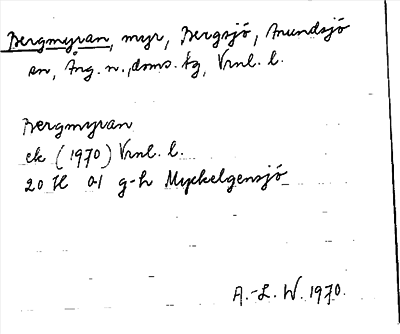 Bergmyran, myr, Bergsjö, Anundsjö
sn, Ång. n., doms. tg, Vrnl. l.
Bergmyran
ek (1970) Vrnl. l.
20 H 0-1 g-h Myckelgensjö
A.-L. W. 1970.